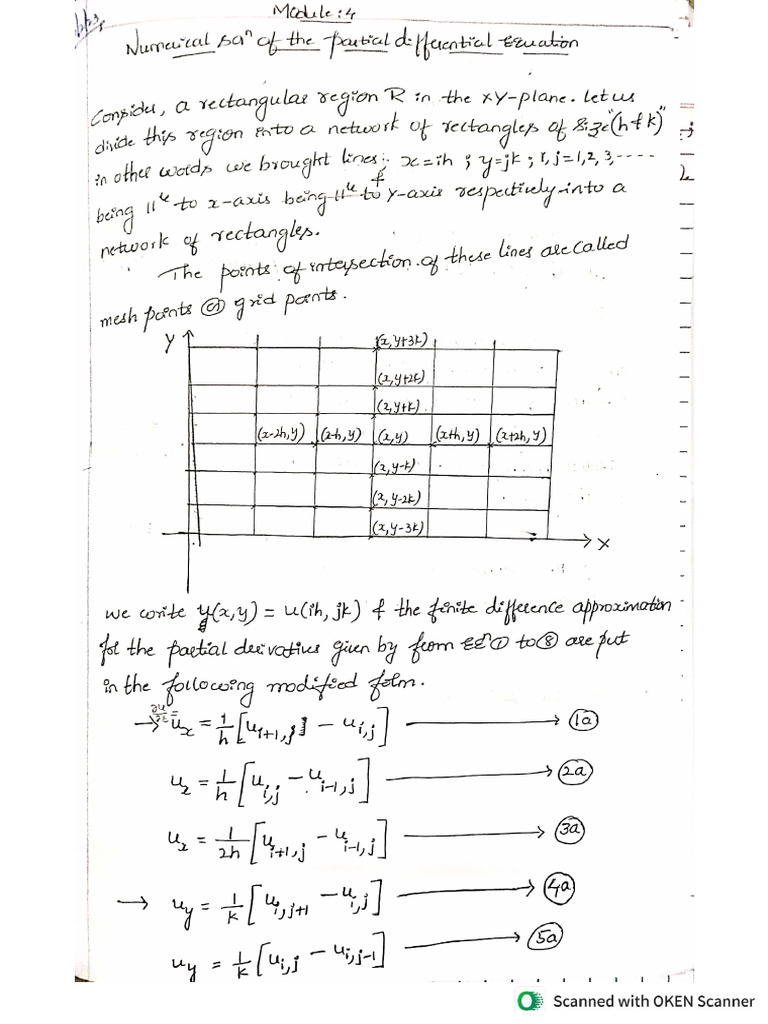 Module: 4
Numerical solⁿ of the partial differential Equation
Consider, a rectangular region R in the XY-plane. Let us
divide this region into a network of rectangles of size "(h & k)"
in other words we brought lines; x=ih ; y=jk ; i,j=1,2,3,----
being 11ᵉˡ to x-axis & being 11ᵉˡ to Y-axis respectively into a
network of rectangles.
The points of intersection of these lines are called
mesh points (or) grid points.
Y
(x, y+3k)
(x, y+2k)
(x, y+k)
(x-2h, y) (x-h, y) (x, y) (x+h, y) (x+2h, y)
(x, y-k)
(x, y-2k)
(x, y-3k)
X
we write u(x,y) = u(ih, jk) & the finite difference approximation
for the partial derivatives given by from EEⁿ ① to ⑧ are put
in the following modified form.
→ ∂u/∂x = u_x = 1/h [u_{i+1,j} - u_{i,j}] → (1a)
u_x = 1/h [u_{i,j} - u_{i-1,j}] → (2a)
u_x = 1/2h [u_{i+1,j} - u_{i-1,j}] → (3a)
→ u_y = 1/k [u_{i,j+1} - u_{i,j}] → (4a)
u_y = 1/k [u_{i,j} - u_{i,j-1}] → (5a)
Scanned with OKEN Scanner